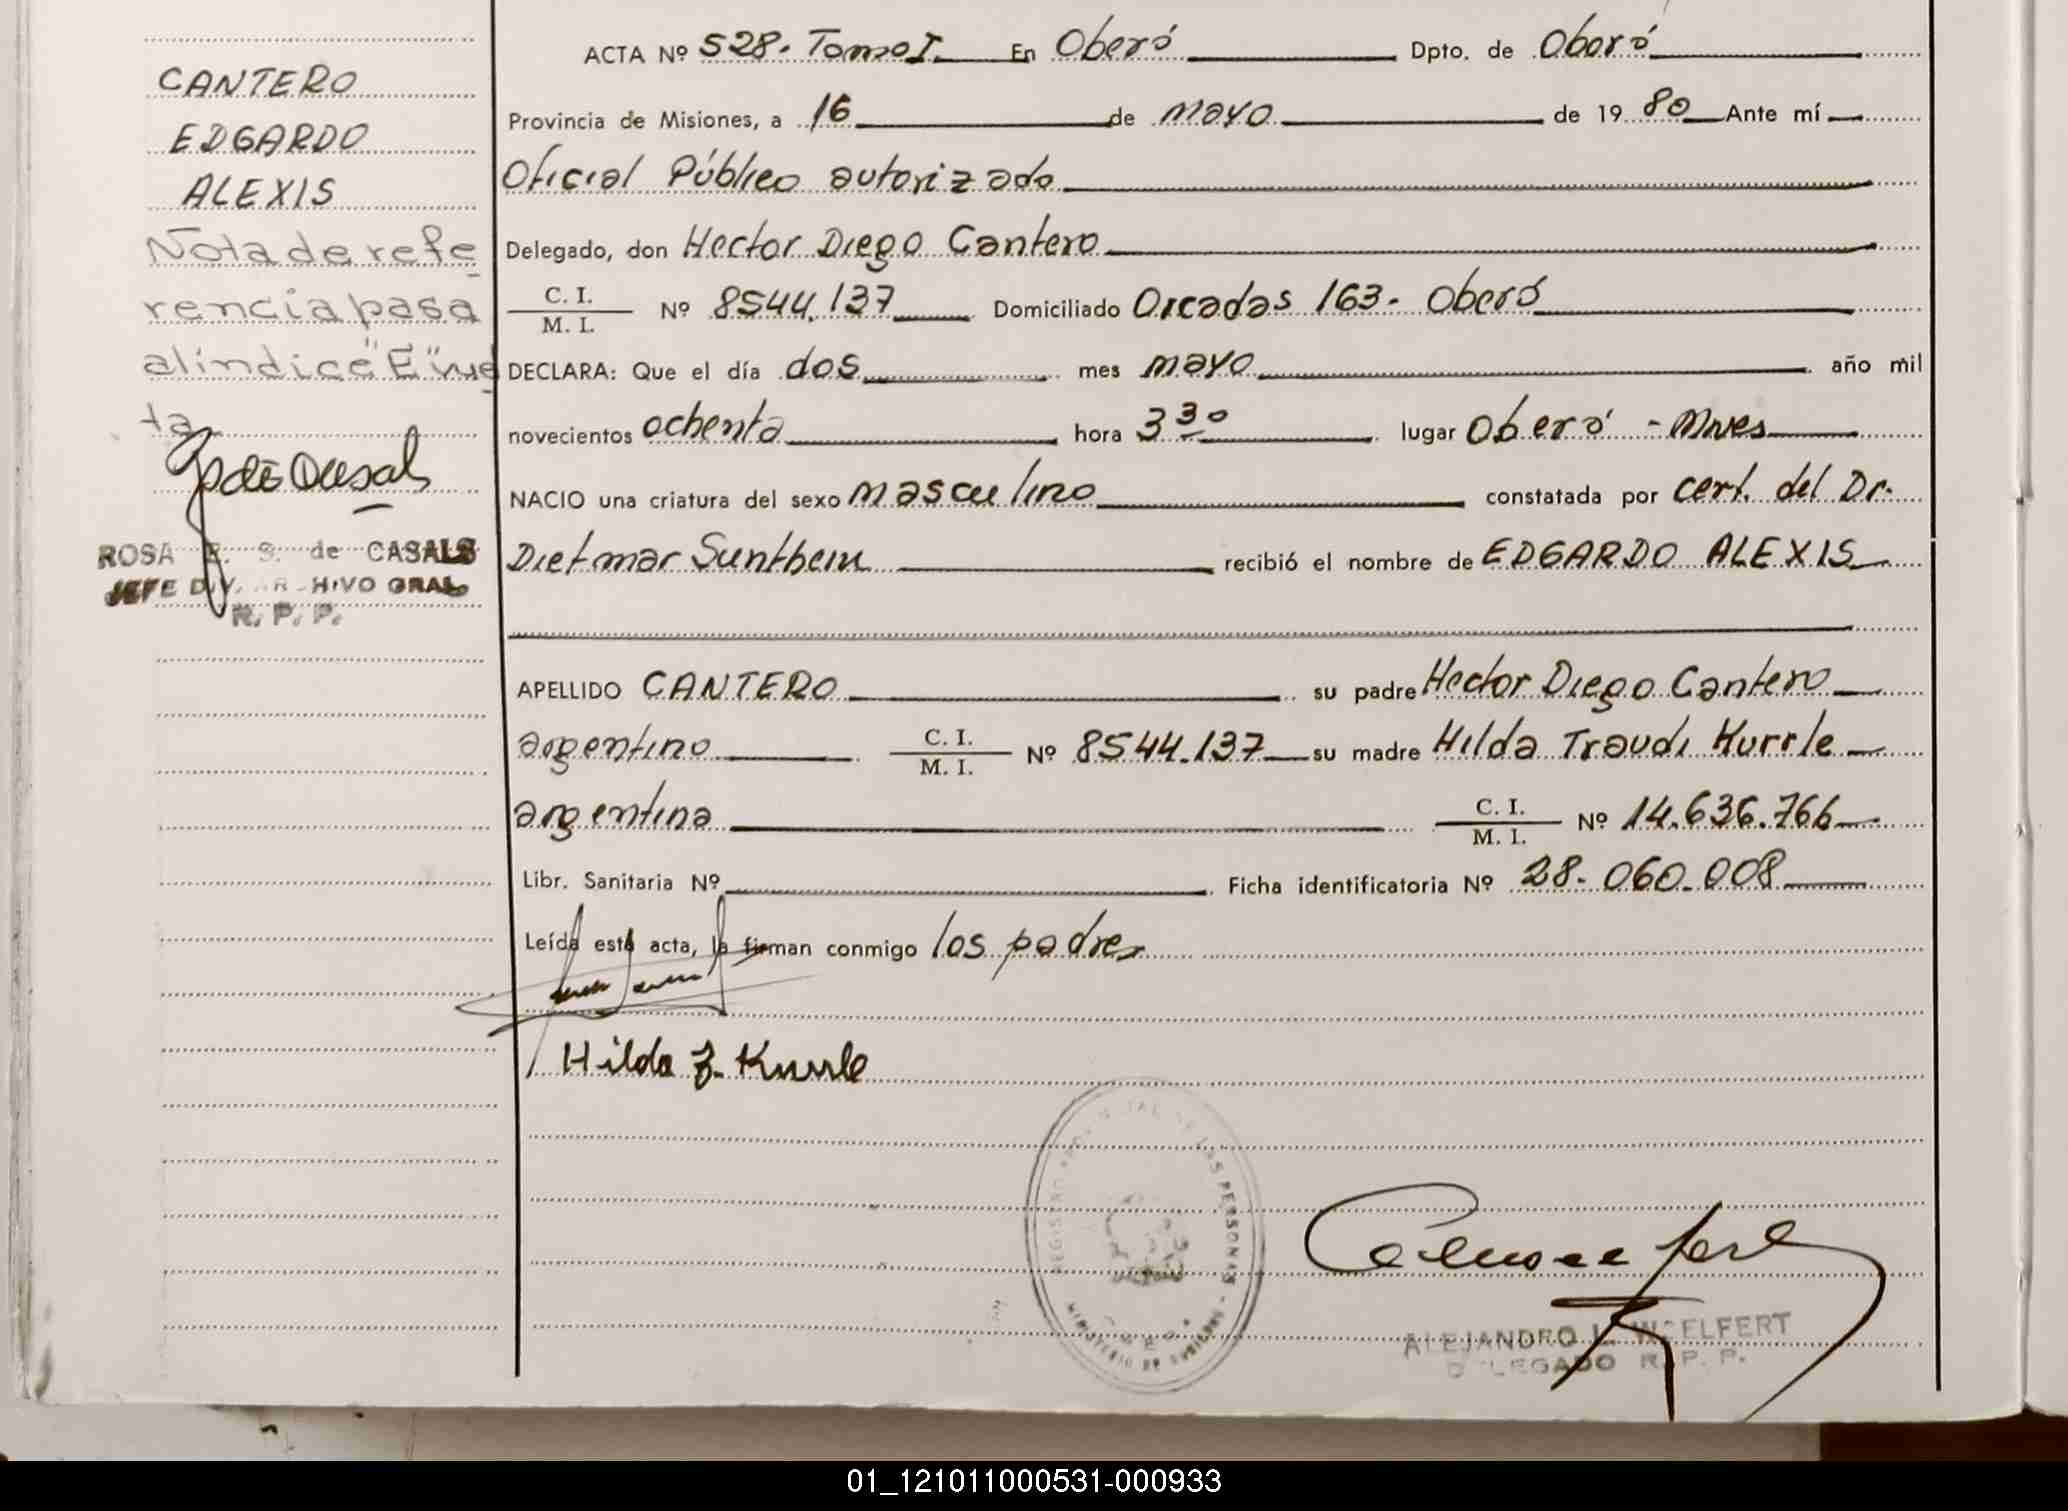 CANTERO
EDGARDO
ALEXIS
Nota de refe
rencia pasa
al indice "E" vuel
ta
ROSA E. S. de CASALS
JEFE DIV. ARCHIVO GRAL.
R. P. P.
ACTA Nº 528. Tomo I. En Oberá Dpto. de Oberá
Provincia de Misiones, a 16 de mayo de 19 80 Ante mí
Oficial Público autorizado
Delegado, don Hector Diego Cantero
C. I. / M. I. Nº 8544.137 Domiciliado Orcadas 163. Oberá
DECLARA: Que el día dos mes mayo año mil
novecientos ochenta hora 3 30 lugar Oberá - Mnes
NACIO una criatura del sexo masculino constatada por cert. del Dr.
Dietmar Sunthein recibió el nombre de EDGARDO ALEXIS
APELLIDO CANTERO su padre Hector Diego Cantero
argentino C. I. / M. I. Nº 8544.137 su madre Hilda Traudi Kurrle
argentina C. I. / M. I. Nº 14.636.766
Libr. Sanitaria Nº Ficha identificatoria Nº 28.060.008
Leída esta acta, la firman conmigo los padres
Hilda T. Kurrle
REGISTRO PROVINCIAL DE LAS PERSONAS - MINISTERIO DE GOBIERNO
ALEJANDRO L. WOELFERT
DELEGADO R. P. P.
01_121011000531-000933